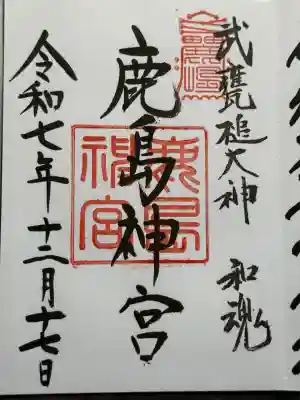 武甕槌大神　和魂
鹿島神宮
鹿島神宮
令和七年十二月十七日